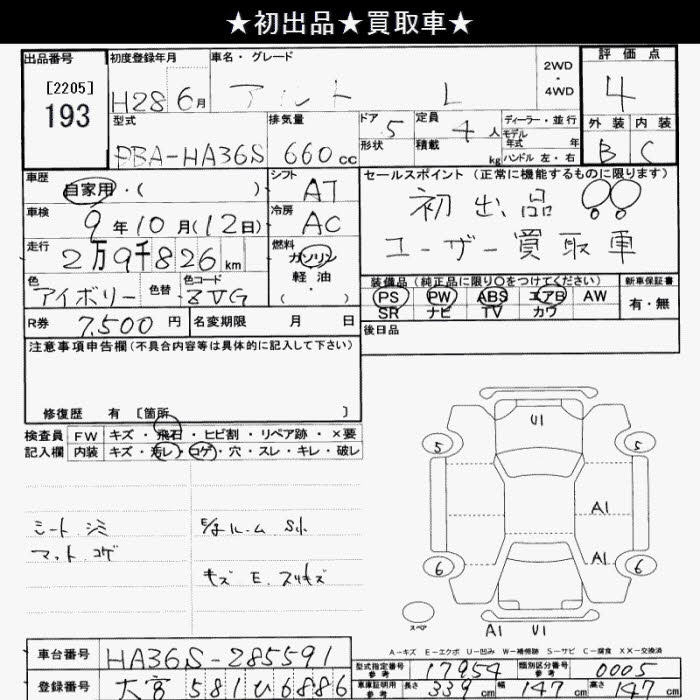 ★初出品★買取車★
出品番号 [2205] 193
初度登録年月 H28 6月
車名・グレード アルト L
2WD・4WD
評価点 4
型式 DBA-HA36S
排気量 660cc
ドア 5
形状
定員 4人
積載 kg
ディーラー・並行
モデル年式 年
ハンドル 左・右
外装 B
内装 C
車歴 自家用・( )
シフト AT
セールスポイント (正常に機能するものに限ります)
初出品!!
ユーザー買取車
車検 9年10月(12日)
冷房 AC
走行 2万9千826km
燃料 ガソリン・軽油・( )
色 アイボリー 色替 色コード ZVG
装備品 (純正品に限り〇をつけてください)
PS PW ABS エアB AW
SR ナビ TV カワ
新車保証書 有・無
R券 7,500円
名変期限 月 日
後日品
注意事項申告欄 (不具合内容等は具体的に記入して下さい)
修復歴 有 [箇所 ]
検査員記入欄
FW キズ・飛石・ヒビ割・リペア跡・×要
内装 キズ・汚レ・コゲ・穴・スレ・キレ・破レ
シート シミ
マット コゲ
キズ E. スリキズ
U1
5 5
A1
A1
6 6
スペア
A1 U1
A-キズ E-エクボ U-凹み W-補修跡 S-サビ C-腐食 XX-交換済
車台番号 HA36S-285591
登録番号 大宮 581 ひ6886
型式指定番号 参考 17954
類別区分番号 参考 0005
車庫証明用 参考 長さ 339cm 幅 147cm 高さ 147cm